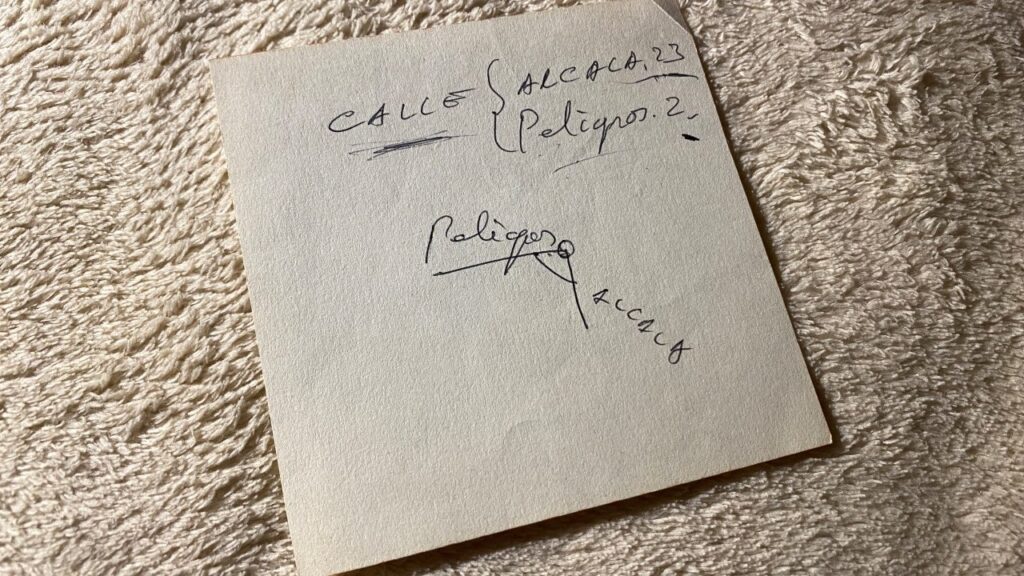 CALLE { ALCALA, 23
Peligros. 2.
Peligros
ALCALA